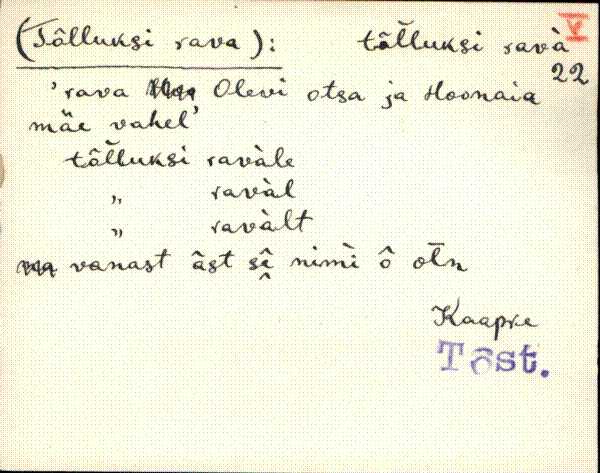 (Tõlluksi rava): tõ̬l̆luksi ravà
V
22
'rava Olevi otsa ja Hoonaia
mäe vahel'
tõl̆luksi ravàle
„ ravàl
„ ravàlt
vanast ä̂st sî nimì ô otn
Kaapre
Tõst.